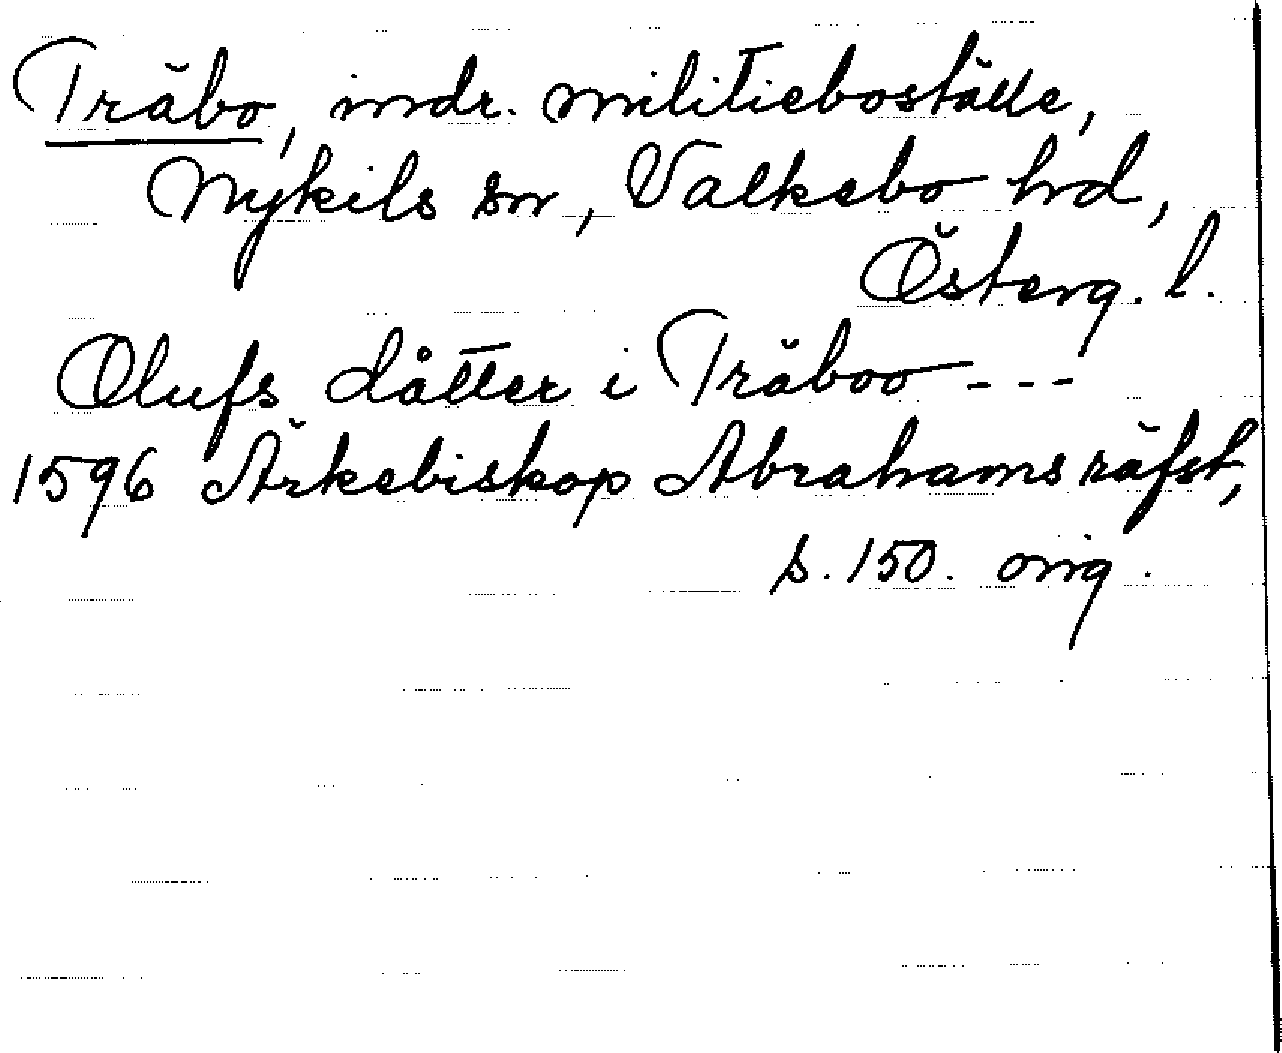 Träbo, indr. militieboställe,
Nykils sn, Valkebo hd,
Österg. l.
Olufs dåtter i Träboo ---
1596 Ärkebiskop Abrahams räfst,
s. 150. orig.